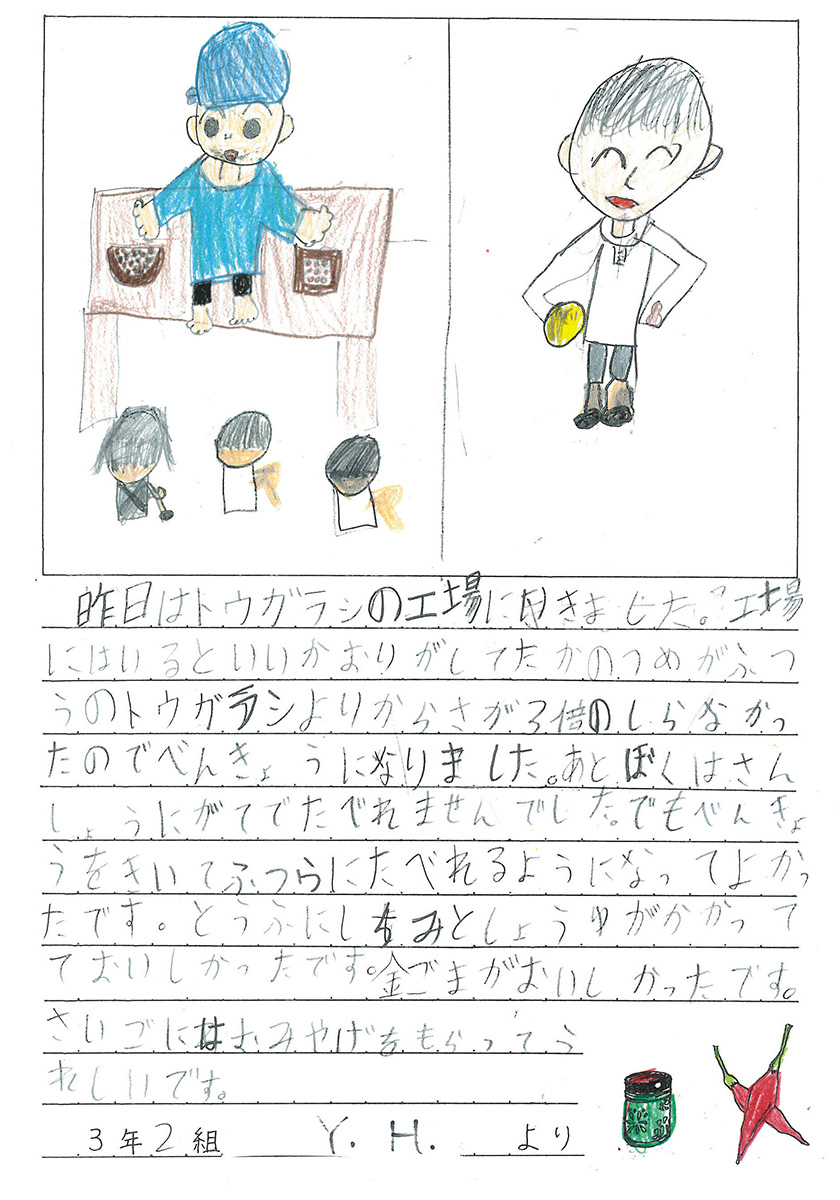 昨日はトウガラシの工場に行きました。工場
にはいるといいかおりがしてたかのつめがふつ
うのトウガラシよりからさが3倍のしらなかっ
たのでべんきょうになりました。あとぼくはさん
しょうにがてでたべれませんでした。でもべんきょ
うをきいてふつうにたべれるようになってよかっ
たです。とうふにしちみとしょうゆがかかって
ておいしかったです。金ごまがおいしかったです。
さいごにはおみやげをもらってう
れしいです。
3年2組 Y. H. より